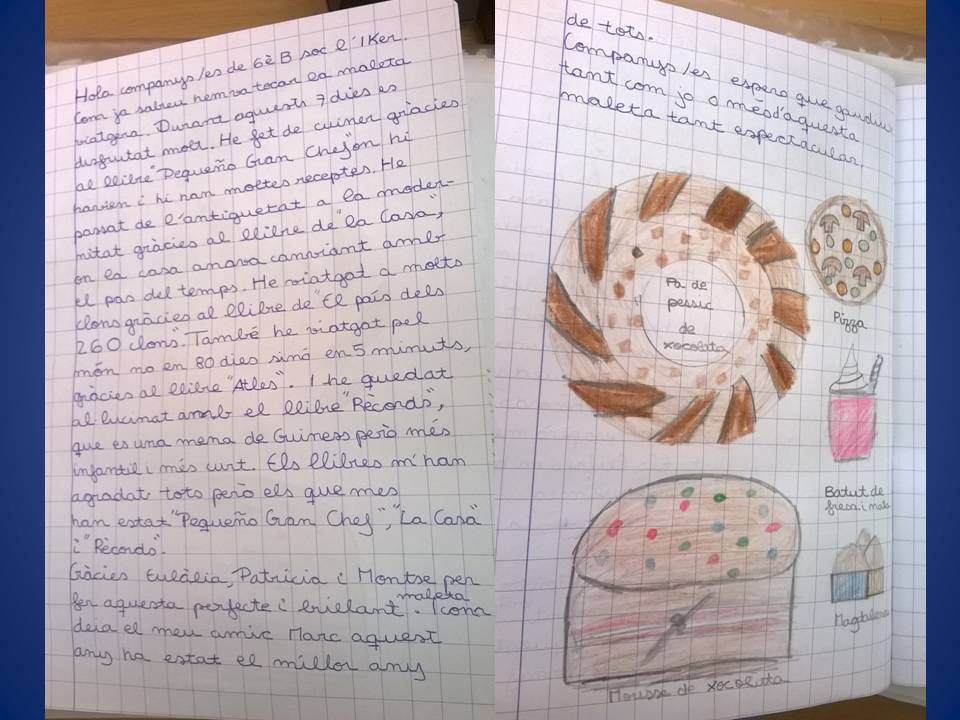 Hola companys/es de 6è B soc l'Iker.
Com ja sabeu hem va tocar la maleta
viatgera. Durant aquests 7 dies es
disfruitat molt. He fet de cuiner gràcies
al llibre "Pequeño Gran Chef" on hi
havien i hi han moltes receptes. He
passat de l'antiguetat a la moder-
nitat gràcies al llibre de "la Casa",
on la casa anava canviant amb
el pas del temps. He viatgat a molts
clons gràcies al llibre de "El país dels
260 clons". També he viatgat pel
món no en 80 dies sinó en 5 minuts,
gràcies al llibre "Atles". I he quedat
al·lucinat amb el llibre "Rècords",
que es una mena de Guiness però més
infantil i més curt. Els llibres m'han
agradat tots però els que mes
han estat "Pequeño Gran Chef", "La Casa"
i "Rècords".
Gàcies Eulàlia, Patricia i Montse per
fer aquesta perfecte i brillant maleta. I com
deia el meu amic Marc aquest
any ha estat el millor any
de tots.
Companys/es espero que gaudiu
tant com jo o més d'aquesta
maleta tant espectacular.
Pa de
pessic
de
xocolata
Pizza
Batut de
fresa i nata
Magdalena
Mousse de xocolata